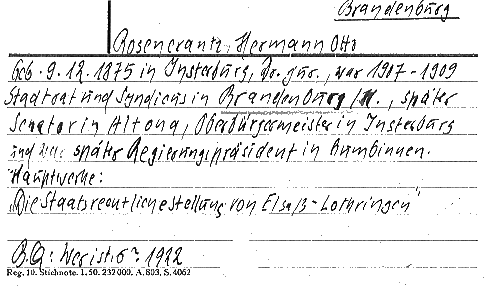 Brandenburg
Rosencrantz, Hermann Otto
Geb. 9.12.1875 in Insterburg, Dr. jur., war 1907-1909
Stadtrat und Syndicus in Brandenburg/H., später
Senator in Altona, Oberbürgermeister in Insterburg
und war später Regierungspräsident in Gumbinnen.
Hauptwerke:
„Die Staatsrechtliche Stellung von Elsaß-Lothringen"
B.Q.: Wer ist's? 1922
Reg. 10. Stichnote. 1. 50. 232000. A. 803, S. 4062